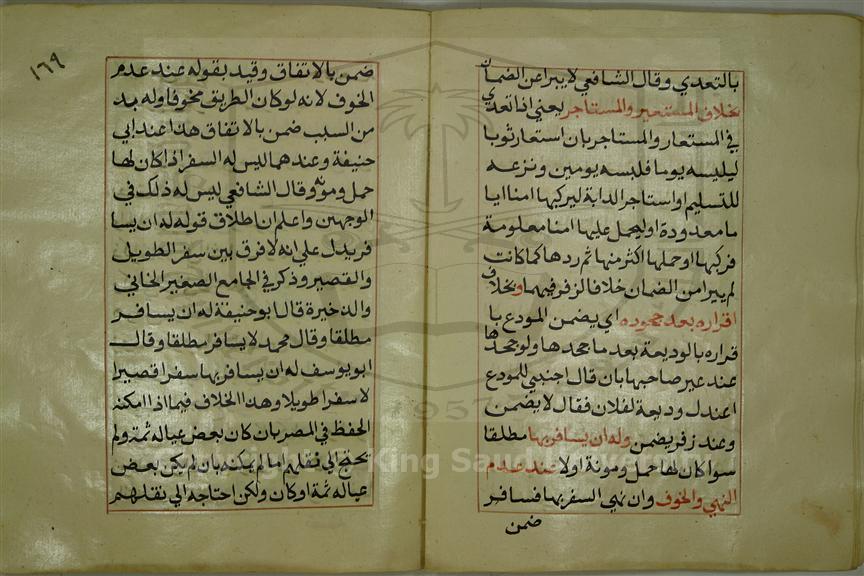 بالتعدي وقال الشافعي لا يبرا عن الضمان
بخلاف المستعير والمستاجر يعني اذا تعدي
في المستعار والمستاجر بان استعار ثوبا
ليلبسه يوما فلبسه يومين ونزعه
للتسليم او استاجر الدابة ليركبها اماايا
ما معدودة او ليحمل عليها امنا معلومة
فركبها او حملها اكثر منها ثم ردها كما كانت
لم يبرا من الضمان خلافا لزفر فيهما وبخلاف
اقراره بعد جحوده اي يضمن المودع با
قراره بالوديعة بعد ما جحدها ولو جحدها
عند غير صاحبها بان قال اجنبي للمودع
اعندك وديعة لفلان فقال لا يضمن
وعند زفر يضمن وله ان يسافر بها مطلقا
سوا كان لها حمل ومونة اولا عند عدم
النهي والخوف وان نهي السفر بها فسافر
ضمن
١٦٩
ضمن بالاتفاق وقيد بقوله عند عدم
الخوف لانه لو كان الطريق مخوفا وله بد
من السبب ضمن بالاتفاق هذا عند ابي
حنيفة وعندهما ليس له السفر اذا كان لها
حمل ومونة وقال الشافعي ليس له ذلك في
الوجهين واعلم ان اطلاق قوله له ان يسا
فر يدل علي انه لا فرق بين سفر الطويل
والقصير وذكر في الجامع الصغير الخاني
والذخيرة قال ابو حنيفة له ان يسافر
مطلقا وقال محمد لا يسافر مطلقا وقال
ابو يوسف له ان يسافر بها سفرا قصيرا
لا سفرا طويلا وهذا الخلاف فيما اذا امكنه
الحفظ في المصر بان كان بعض عياله ثمة ولم
يحتج الي نقلهم اما لم يمكنه بان لم يكن بعض
عياله ثمة او كان ولكن احتاجه الي نقلهم
King Saud
1957